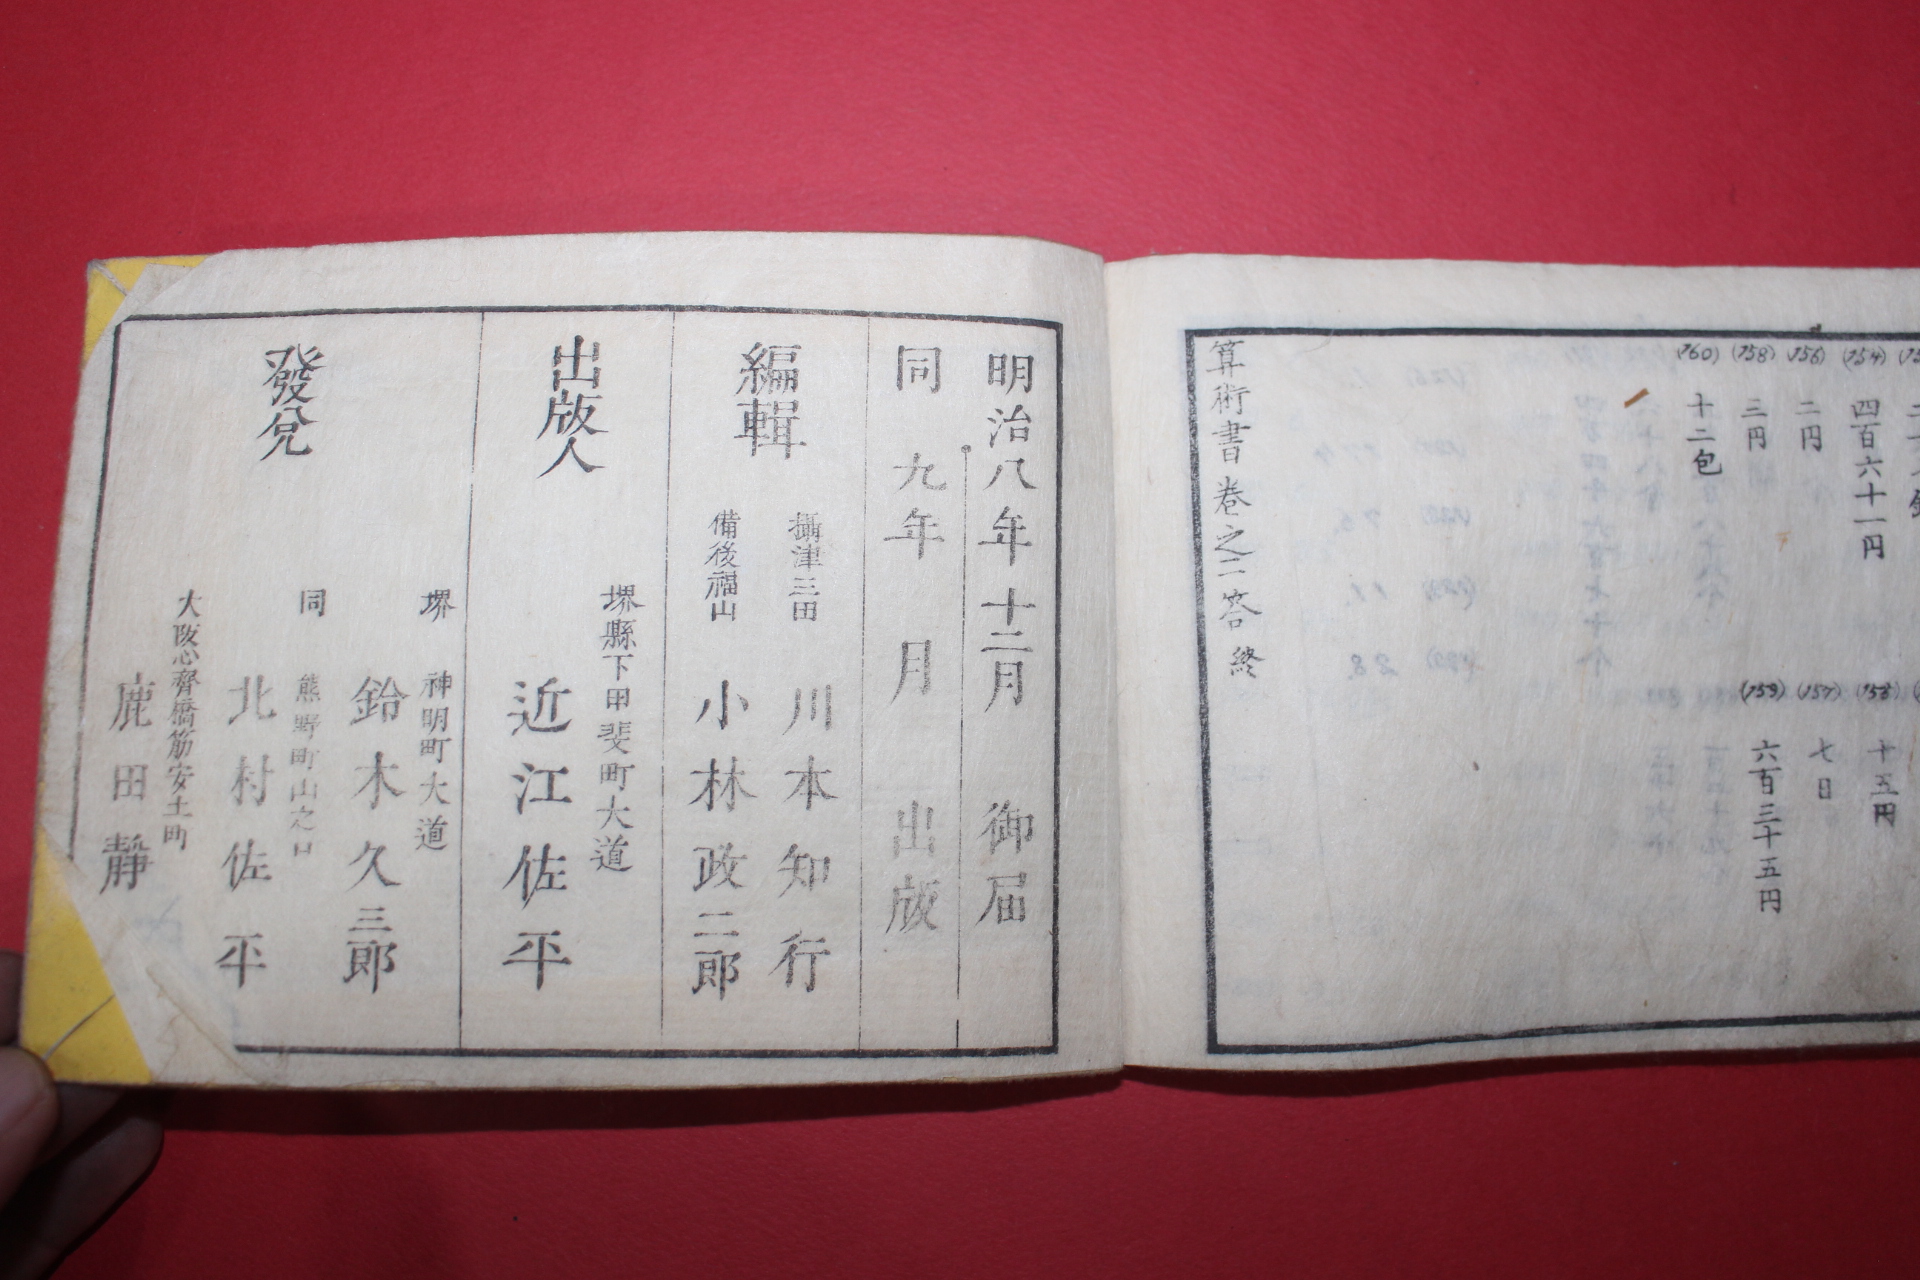 (154)
四百六十一円
(156)
二円
(158)
三円
(160)
十二包
十五円
(157)
七日
(159)
六百三十五円
算術書巻之二答終
明治八年十二月 御届
同 九年 月 出版
編輯
攝津三田 川本知行
備後福山 小林政二郎
出版人
堺縣下甲斐町大道
近江佐平
發兌
堺 神明町大道
鈴木久三郎
同 熊野町山之口
北村佐平
大阪心齋橋筋安土町
鹿田靜